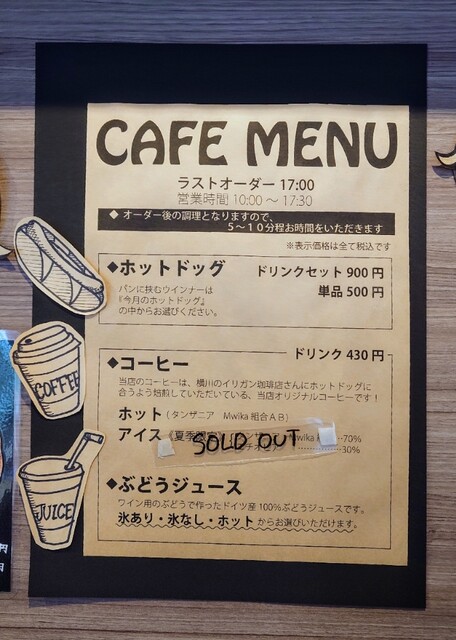 CAFE MENU
ラストオーダー 17:00
営業時間 10:00 ～ 17:30
◆ オーダー後の調理となりますので、
５～１０分程お時間をいただきます
※表示価格は全て税込です
◆ホットドッグ ドリンクセット 900 円
単品 500 円
パンに挟むウインナーは
『今月のホットドッグ』
の中からお選びください。
COFFEE
ドリンク 430 円
◆コーヒー
当店のコーヒーは、横川のイリガン珈琲店さんにホットドッグに
合うよう焙煎していただいている、当店オリジナルコーヒーです！
ホット（タンザニア Mwika 組合ＡＢ）
アイス《夏季 Mwika 70%
30%
SOLD OUT
JUICE
◆ぶどうジュース
ワイン用のぶどうで作ったドイツ産 100％ぶどうジュースです。
氷あり・氷なし・ホット からお選びいただけます。
円